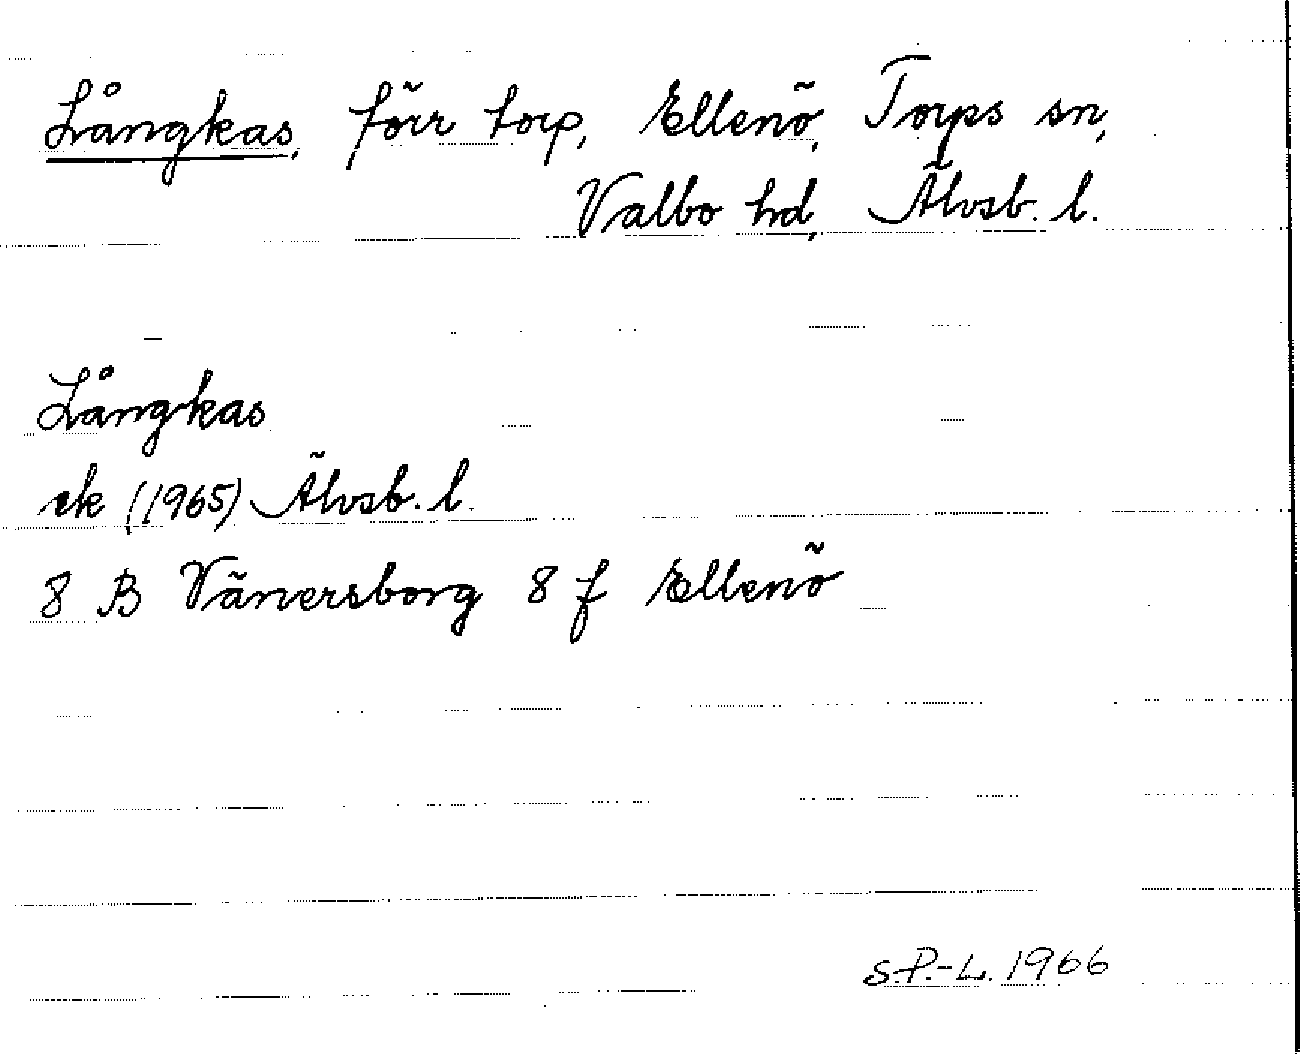 Långkas, förr torp, Ellenö, Torps sn,
Valbo hd, Älvsb. l.
Långkas
ek (1965) Älvsb. l.
8 B Vänersborg 8 f Ellenö
S.P.-L. 1966